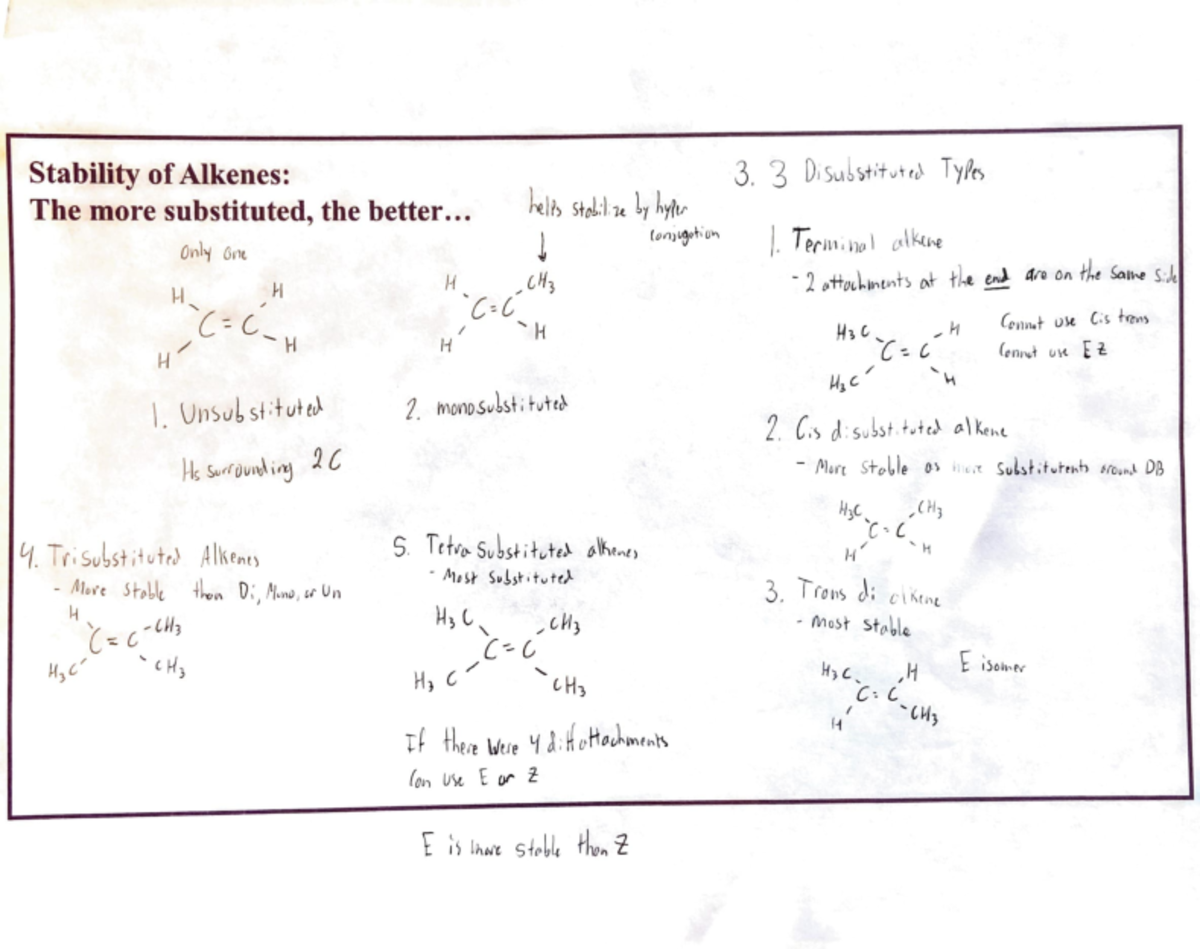 Stability of Alkenes:
The more substituted, the better...
Only one
H H
C=C
H H
1. Unsubstituted
Hs surrounding 2C
helps stabilize by hyper
conjugation
H CH3
C=C
H H
2. monosubstituted
3. 3 Disubstituted Types
1. Terminal alkene
- 2 attachments at the end are on the same side
H3C H
C=C
H3C H
Cannot use Cis trans
Cannot use EZ
2. Cis disubstituted alkene
- More stable as more substitutents around DB
H3C CH3
C=C
H H
3. Trans di alkene
- most stable
H3C H
C=C
H CH3
E isomer
4. Trisubstituted Alkenes
- More stable than Di, Mono, or Un
H
C=C-CH3
H3C CH3
5. Tetra Substituted alkenes
- Most substituted
H3C CH3
C=C
H3C CH3
If there were 4 diff attachments
Can use E or Z
E is more stable than Z